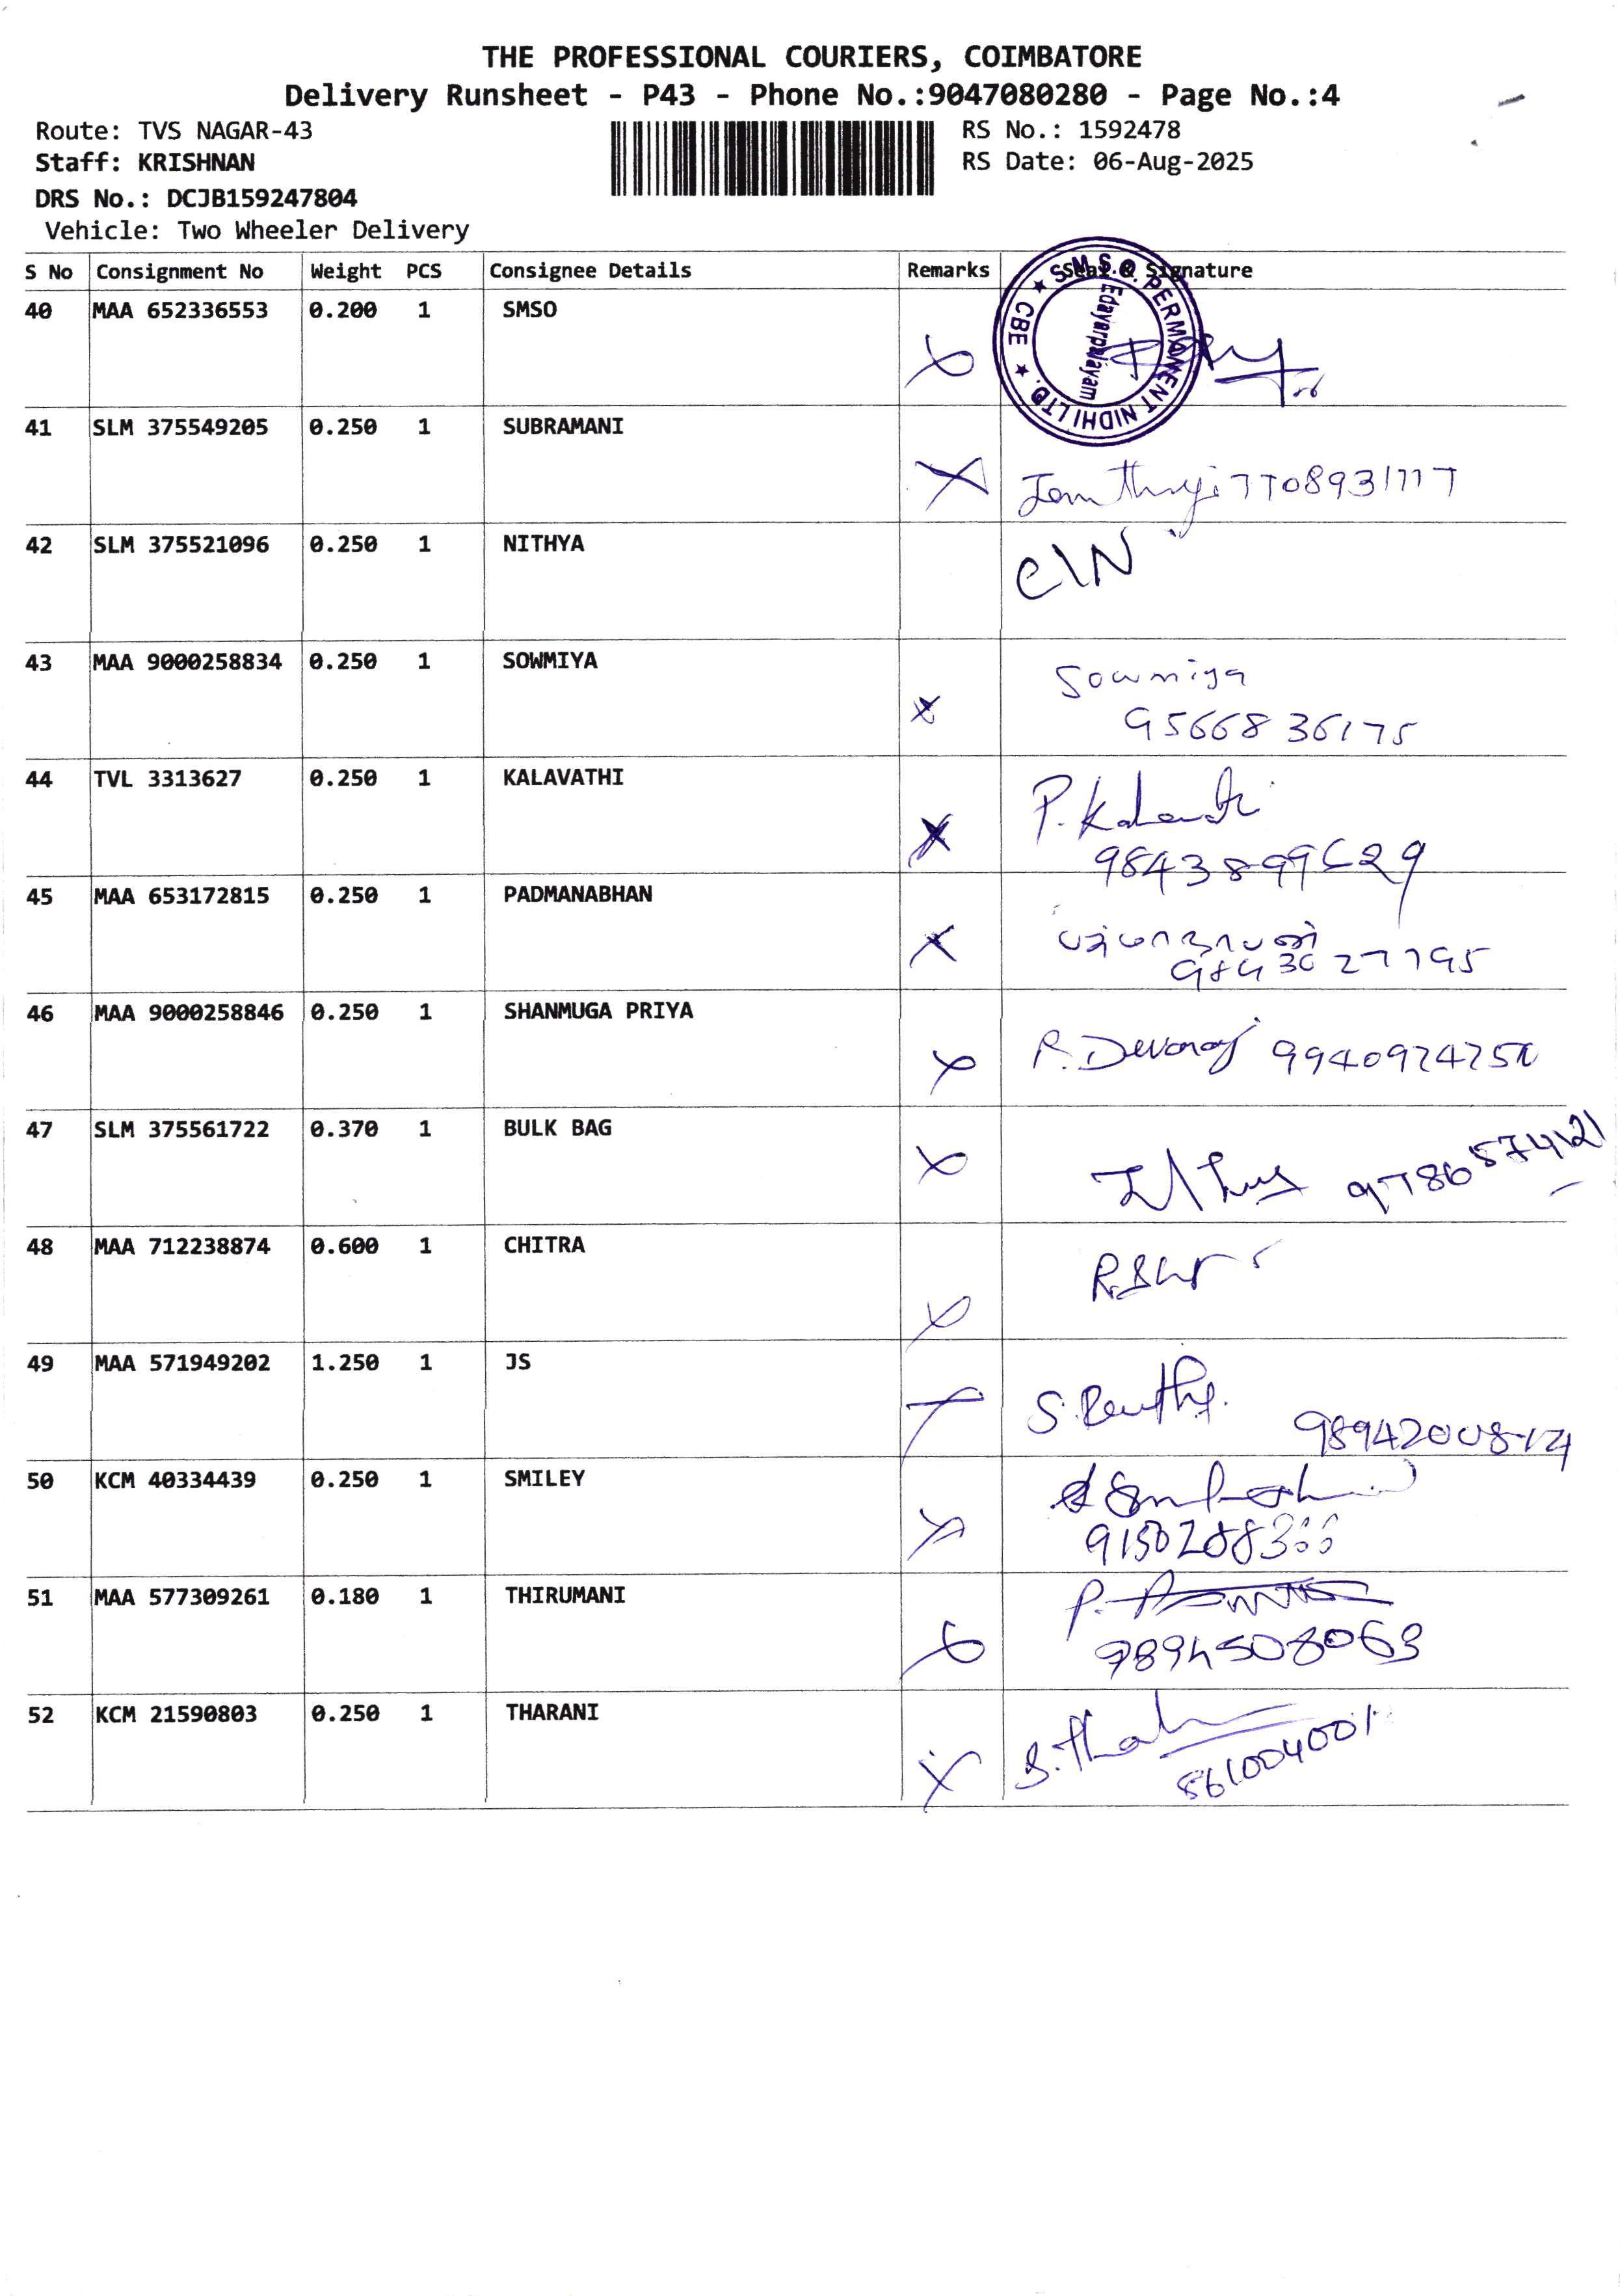 THE PROFESSIONAL COURIERS, COIMBATORE
Delivery Runsheet - P43 - Phone No.:9047080280 - Page No.:4
Route: TVS NAGAR-43
RS No.: 1592478
Staff: KRISHNAN
RS Date: 06-Aug-2025
DRS No.: DCJB159247804
Vehicle: Two Wheeler Delivery
S No Consignment No Weight PCS Consignee Details Remarks Seal & Signature
S.M.S.O. PERMANENT NIDHI LTD. CBE
Edayarpalayam
40 MAA 652336553 0.200 1 SMSO
41 SLM 375549205 0.250 1 SUBRAMANI
7708931777
42 SLM 375521096 0.250 1 NITHYA
C\N
43 MAA 9000258834 0.250 1 SOWMIYA
Sowmiya
9566836175
44 TVL 3313627 0.250 1 KALAVATHI
9843899629
45 MAA 653172815 0.250 1 PADMANABHAN
46 MAA 9000258846 0.250 1 SHANMUGA PRIYA
R. Devaraj
47 SLM 375561722 0.370 1 BULK BAG
48 MAA 712238874 0.600 1 CHITRA
49 MAA 571949202 1.250 1 JS
50 KCM 40334439 0.250 1 SMILEY
51 MAA 577309261 0.180 1 THIRUMANI
52 KCM 21590803 0.250 1 THARANI
861004001